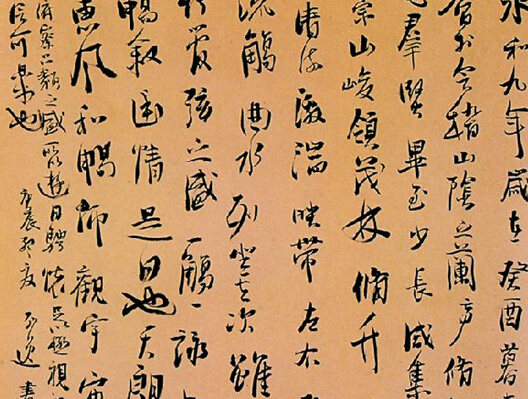 永和九年歲在癸酉暮
會於會稽山陰之蘭亭脩
群賢畢至少長咸集
崇山峻領茂林脩竹
清流激湍映帶左右
流觴曲水列坐其次雖
管弦之盛一觴一詠
暢叙幽情是日也天朗
惠風和暢仰觀宇宙
俯察品類之盛所以遊目騁懷足以極視
信可樂也 庚辰 書